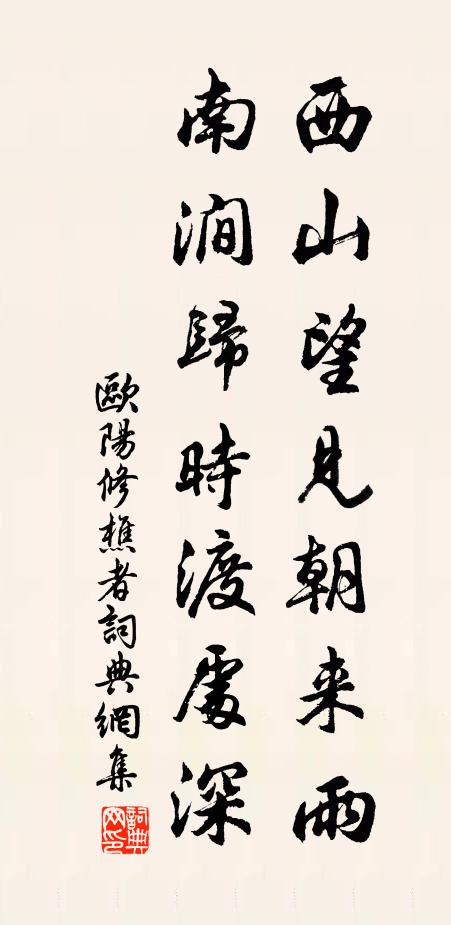 西山望見朝来雨
南澗歸時渡處深
歐陽修樵者詞典網集
詞典网印